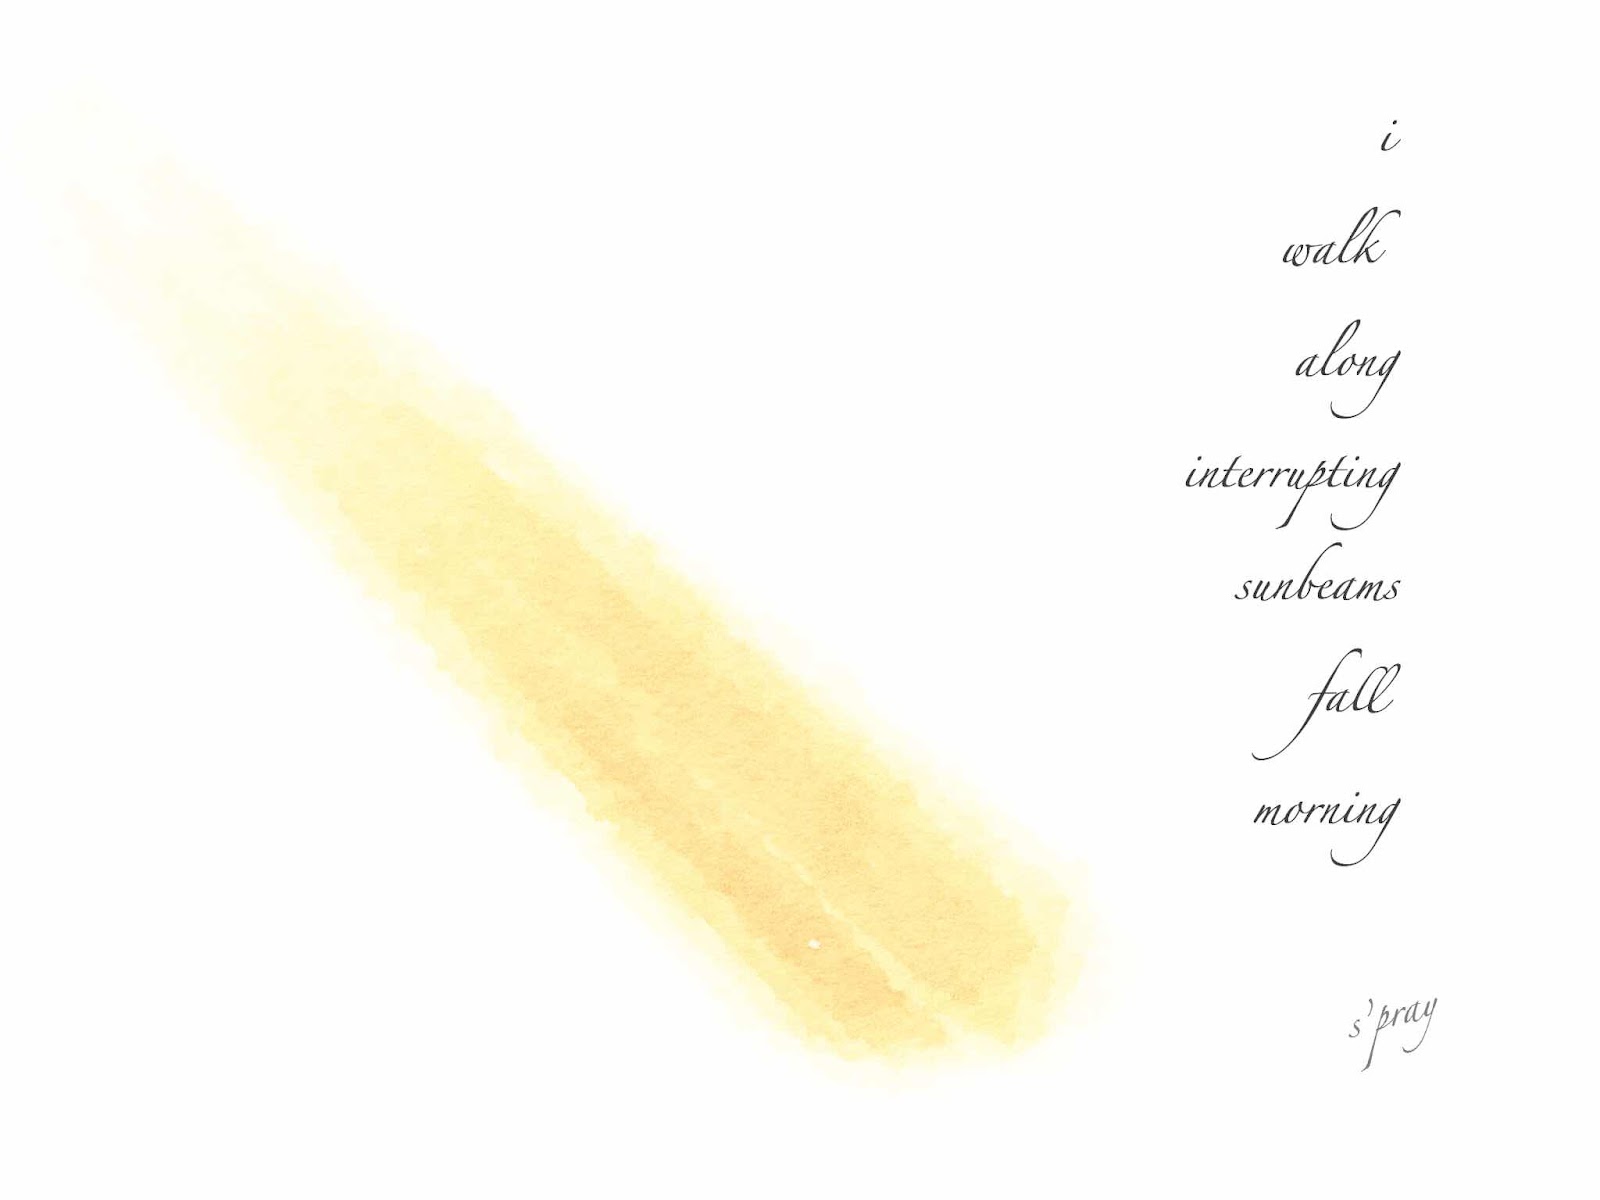 i
walk
along
interrupting
sunbeams
fall
morning
s'pray